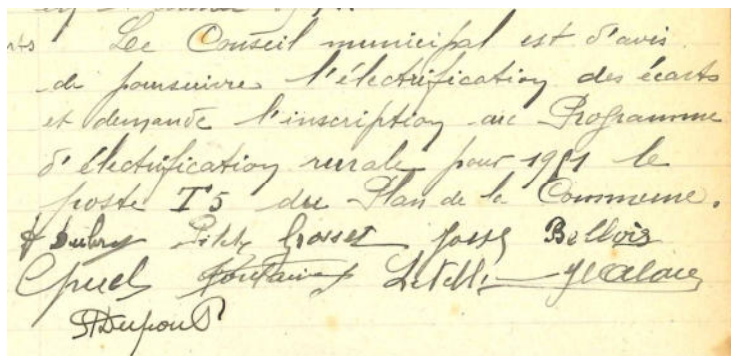 Le Conseil municipal est d'avis
de poursuivre l'électrification des écarts
et demande l'inscription au Programme
d'électrification rurale pour 1951 le
poste T5 du Plan de la Commune.
Grosset Josse Bellois
Fontaine
Dupont